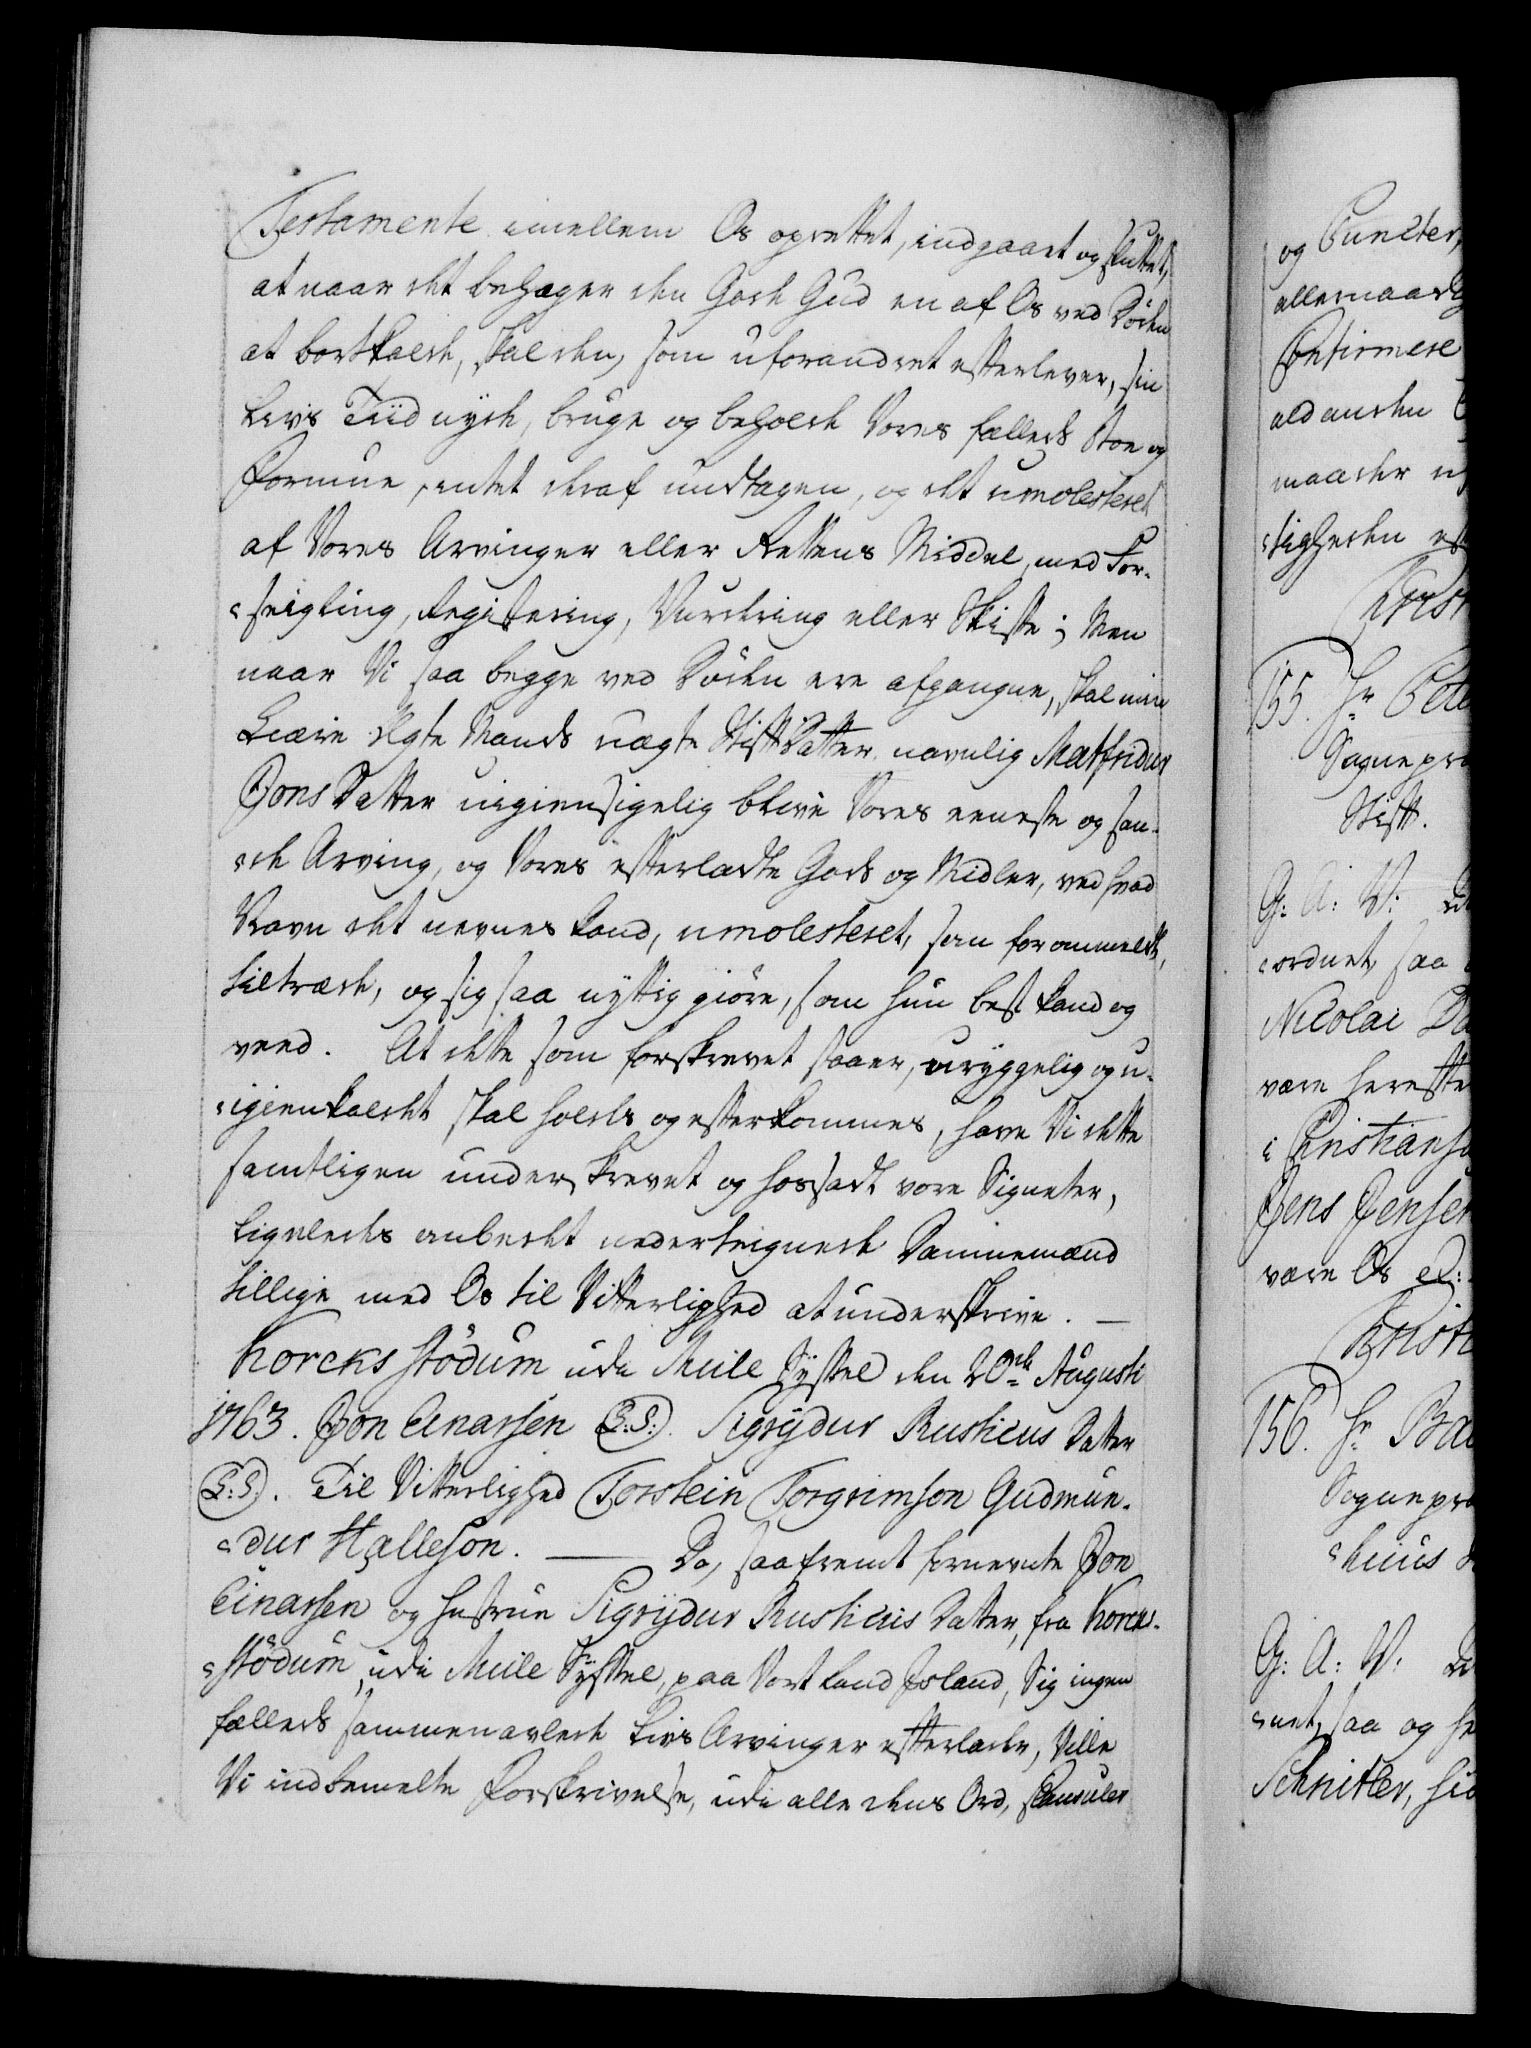 Testamente imellem Os oprettet, indgaaet og sluttet,
at naar det behager den Gode Gud en af Os ved Döden
at bortkalde, skal den, som uforandret efterlever, sin
Livs Tiid nyde, bruge og beholde Vores fælleds Boe og
Formue, intet deraf undtagen, og det umolesteret
af Vores Arvinger eller Rettens Middel, med For-
seigling, Registering, Vurdering eller Skifte; Men
naar Vi saa begge ved Döden ere afgangne, skal min
Kiære Ægte Mands uægte Stifdatter navnlig Matfridur
Jons Datter uigiensigelig blive Vores eeneste og san-
de Arving, og Vores efterladte Gods og Midler, ved hvad
Navn det nevnes kand, umolesteret, som foranmeldt,
tiltræde, og sig saa nyttig giöre, som hun best kand og
veed. At dette som forskrevet staaer, uryggelig og u-
igienkaldet skal holdes og efterkommes, have Vi dette
samtligen underskrevet og hossadt vore Signeter,
ligeledes anbedet nedertegnede Dannemænd
tillige med Os til Vitterlighed at underskrive. —
Korekstödum udi Mule Syssel den 20de Augusti
1763. Jon Einarsen (L:S:). Sigrydur Rusticus Datter
(L:S:). Til Vitterlighed Torstein Torgrimson Gudmun-
dur Halleson. — Da, saafremt fornevnte Jon
Einarsen og Hustrue Sigrydur Rusticus Datter, fra Korek-
stödum, udi Mule Syssel, paa Vort Land Island, Sig ingen
fælleds sammenavlede Livs Arvinger efterlader, Ville
Vi indbemelte Forskrivelse, udi alle dens Ord, Clausuler
og Puncter,
allernaad
Confirmere
ald anden
maader
tigheden
Christ
155. Hr Pete
Sognepræ
Stift.
G: A: V:
ordnet, saa
Nicolai
være herefter
i Christiansa
Jens Jensen
være Os
Christ
156. Hr
Sognepræ
huus
G: A: V:
net, saa og he
Schnitler,